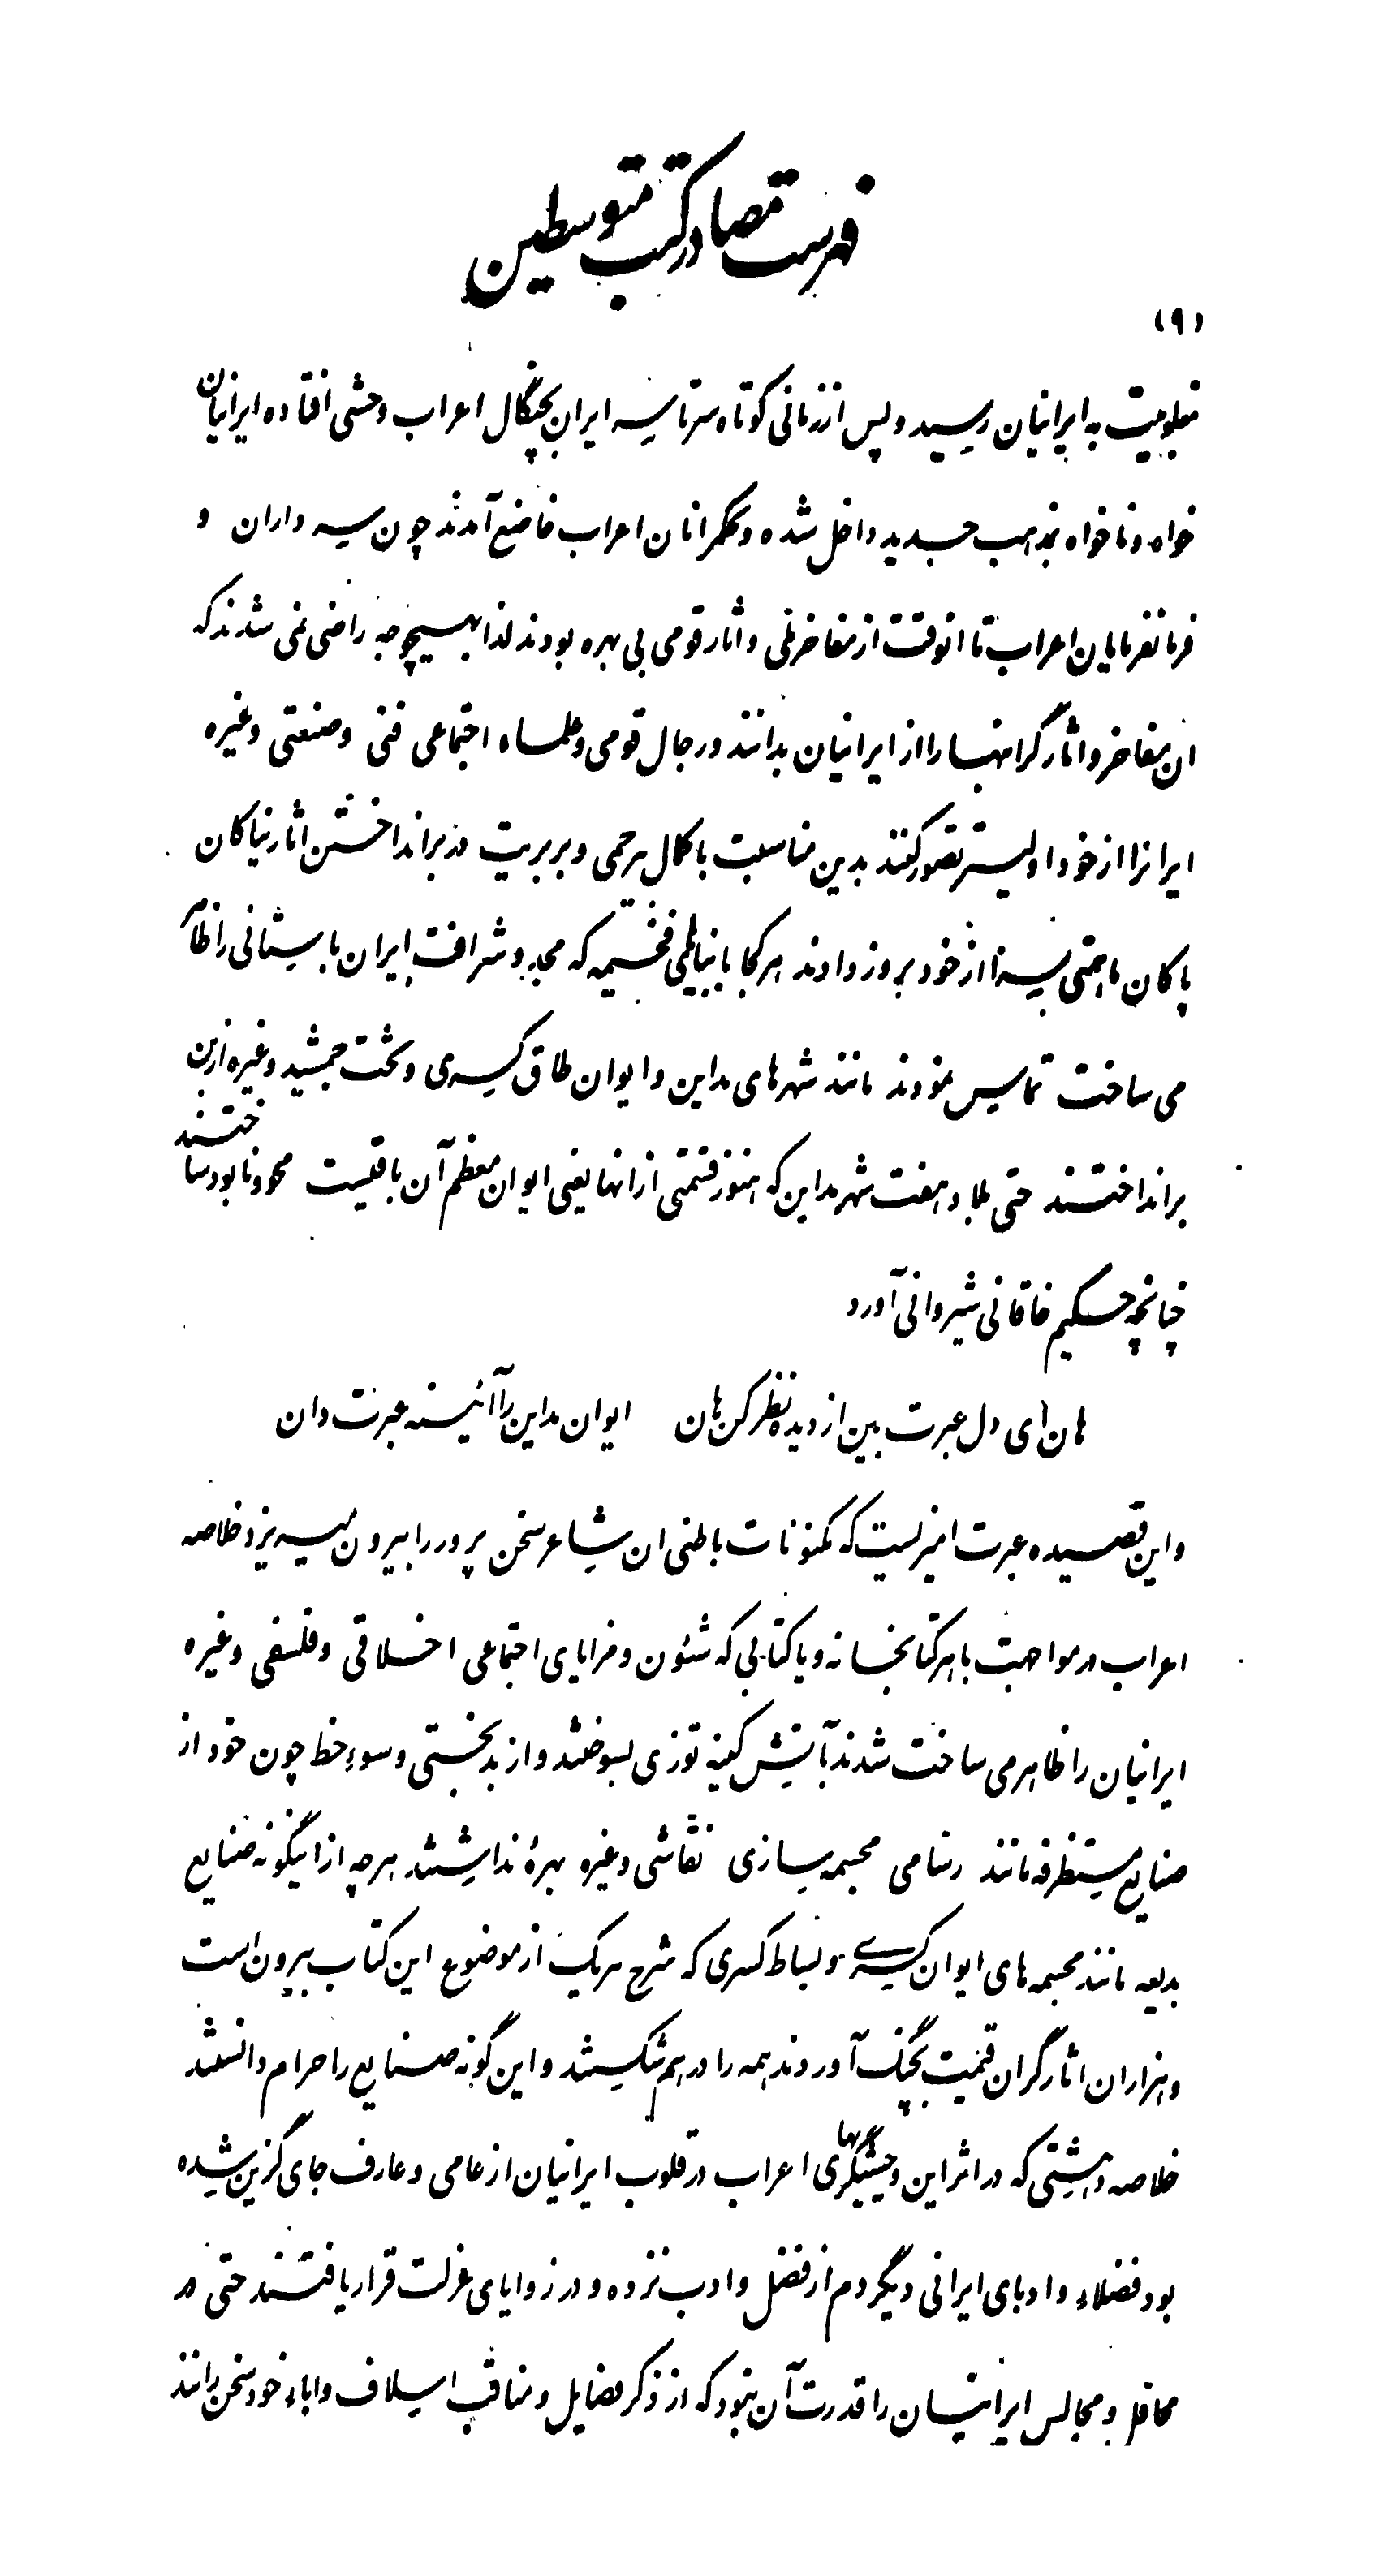 فهرست مصادر کتب متوسطین
(۹)
مغلوبیت به ایرانیان رسید و پس از زمانی کوتاه سرتاسر ایران بچنگال اعراب وحشی افتاده ایرانیان
خواه و ناخواه بمذهب جدید داخل شده و بحکمرانان اعراب خاضع آمدند چون سرداران و
فرمانفرمایان اعراب تا انوقت از مفاخر ملی و اثار قومی بی بهره بودند لذا بهیچوجه راضی نمی شدند که
ان مفاخر و اثار گرانبها را از ایرانیان بدانند و رجال قومی و علماء اجتماعی فنی و صنعتی و غیره
ایرانرا از خود اولیتر تصور کنند بدین مناسبت با کمال بیرحمی و بربریت در برانداختن اثار نیاکان
پاکان ما همتی بسزا از خود بروز دادند هرکجا با بنیانهای فخیمه که مجد و شرافت ایران باستانی را ظاهر
می ساخت تماس نمودند مانند شهرهای مداین و ایوان طاق کسری و تخت جمشید و غیره از بن
برانداختند حتی بلاد هفت شهر مداین که هنوز قسمتی از انها یعنی ایوان معظم آن باقیست محو و نابود ساختند
چنانچه حکیم خاقانی شیروانی آورد
هان ای دل عبرت بین از دیده نظر کن هان ایوان مداین را آئینه عبرت دان
و این قصیده عبرت امیزیست که مکنونات باطنی ان شاعر سخن پرور را بیرون میریزد خلاصه
اعراب در مواجهت با هر کتابخانه و یا کتابی که شئون و مزایای اجتماعی اخلاقی و فلسفی و غیره
ایرانیان را ظاهر می ساخت شدند بآتش کینه توزی بسوختند و از بدبختی و سوء حظ چون خود از
صنایع مستظرفه مانند رسامی مجسمه سازی نقاشی و غیره بهرۀ نداشتند هرچه از اینگونه صنایع
بدیعه مانند مجسمه های ایوان کسری و بساط کسری که شرح هریک از موضوع این کتاب بیرون است
و هزاران اثار گران قیمت بچنگ آوردند همه را در هم شکستند و این گونه صنایع را حرام دانستند
خلاصه دهشتی که در اثر این وحشیگریهای اعراب در قلوب ایرانیان از عامی و عارف جای گزین شده
بود فضلاء و ادبای ایرانی دیگر دم از فضل و ادب نزده و در زوایای عزلت قرار یافتند حتی در
محافل و مجالس ایرانیان را قدرت آن نبود که از ذکر فضایل و مناقب اسلاف و اباء خود سخن رانند